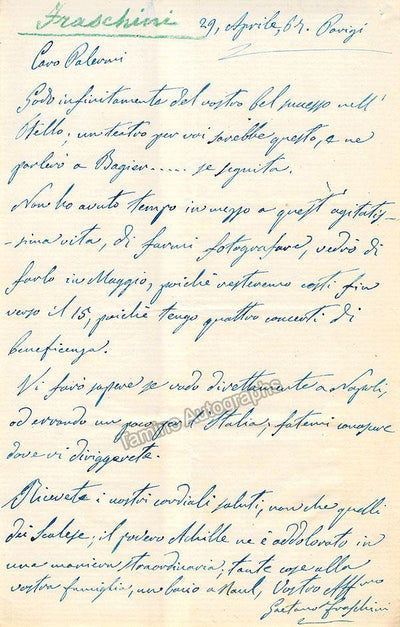 Fraschini
29, Aprile, 64. Parigi
Caro Palermi
Godo infinitamente del vostro bel successo nell'
Otello; un teatro per voi sarebbe questo, e ne
parlerò a Bagier..... se seguita.
Non ho avuto tempo in mezzo a quest' agitatis-
-sima vita, di farmi fotografare, vedrò di
farlo in Maggio, poichè resteremo costì fin
verso il 15, poichè tengo quattro concerti di
beneficenza.
Vi farò sapere se vado direttamente a Napoli,
od errando un poco per l'Italia; fatemi conoscere
dove vi diriggerete.
Ricevete i nostri cordiali saluti, non che quelli
dei Scalese; il povero Achille ne è addolorato in
una maniera straordinaria; tante cose alla
vostra famiglia, un bacio a Vostro Affmo
Gaetano Fraschini
Tamino Autographs